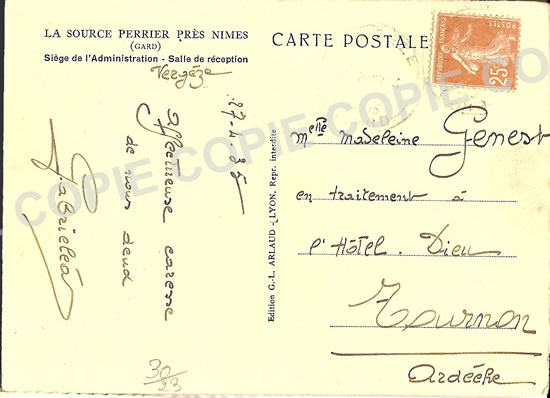 LA SOURCE PERRIER PRÈS NIMES
(GARD)
Siège de l'Administration - Salle de réception
Vergèze
27-4-35
Affectueuse caresse
de nous deux
CARTE POSTALE
POSTES
25c
Melle Madeleine Genest
en traitement à
l'Hôtel-Dieu
Tournon
Ardèche
Edition G.-L. ARLAUD - LYON. Repr. interdite
30/23
COPIE COPIE COPIE COPIE CO